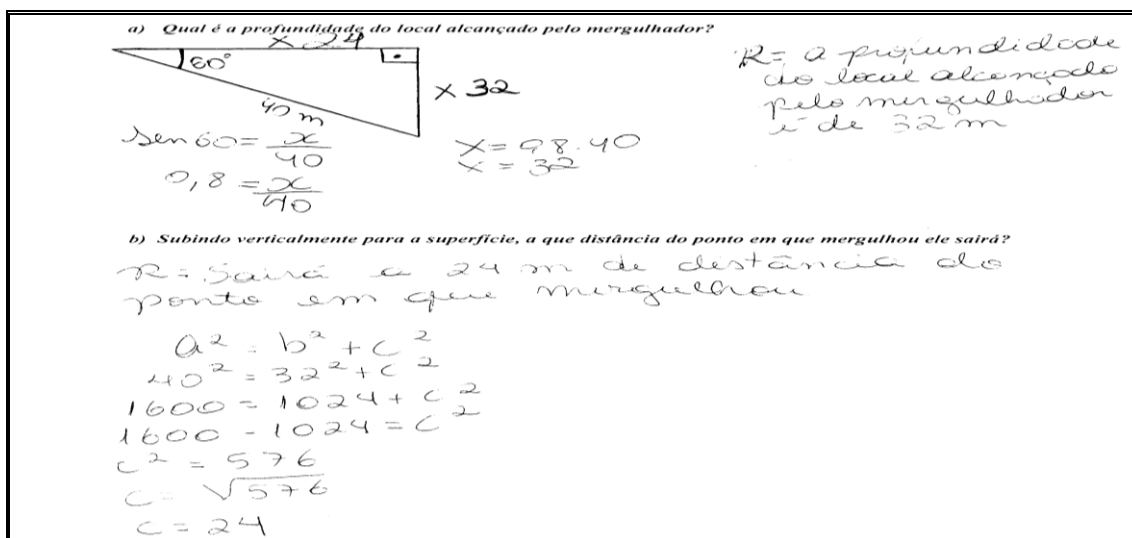 a) Qual é a profundidade do local alcançado pelo mergulhador?
x 24
60°
x 32
40 m
R= a profundidade
do local alcançado
pelo mergulhador
é de 32 m
sen 60 = x/40
0,8 = x/40
x = 08.40
x = 32
b) Subindo verticalmente para a superfície, a que distância do ponto em que mergulhou ele sairá?
R = Sairá a 24 m de distância do
ponto em que mergulhou
a² = b² + c²
40² = 32² + c²
1600 = 1024 + c²
1600 - 1024 = c²
c² = 576
c = √576
c = 24